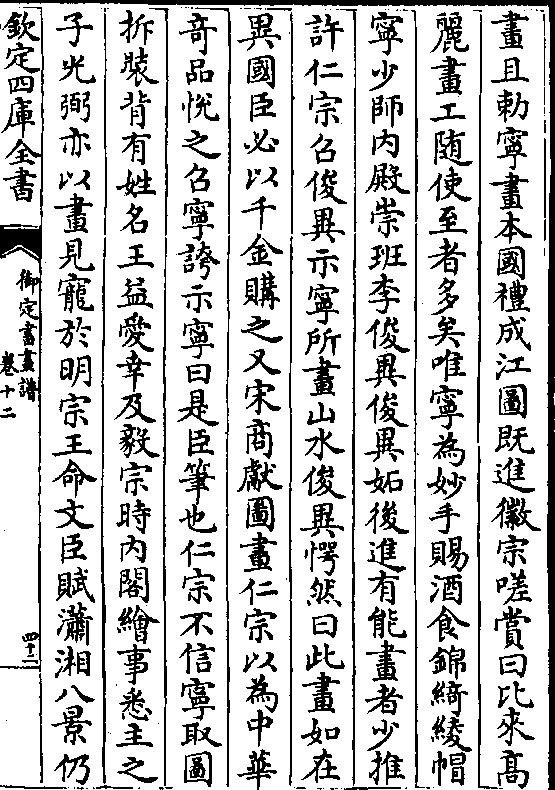 畫且勅寧畫本國禮成江圖既進徽宗嗟賞曰比來髙
麗畫工随使至者多矣唯寧為妙手賜酒食錦綺綾帽
寧少師内殿崇班李俊異俊異妬後進有能畫者少推
許仁宗召俊異示寧所畫山水俊異愕然曰此畫如在
異國臣必以千金購之又宋商獻圖畫仁宗以為中華
竒品悅之召寧誇示寧曰是臣筆也仁宗不信寧取圖
拆裝背有姓名王益愛幸及毅宗時内閣繪事悉主之
子光弼亦以畫見寵於明宗王命文臣賦瀟湘八景仍
欽定四庫全書
御定書畫譜
卷十二
四十二